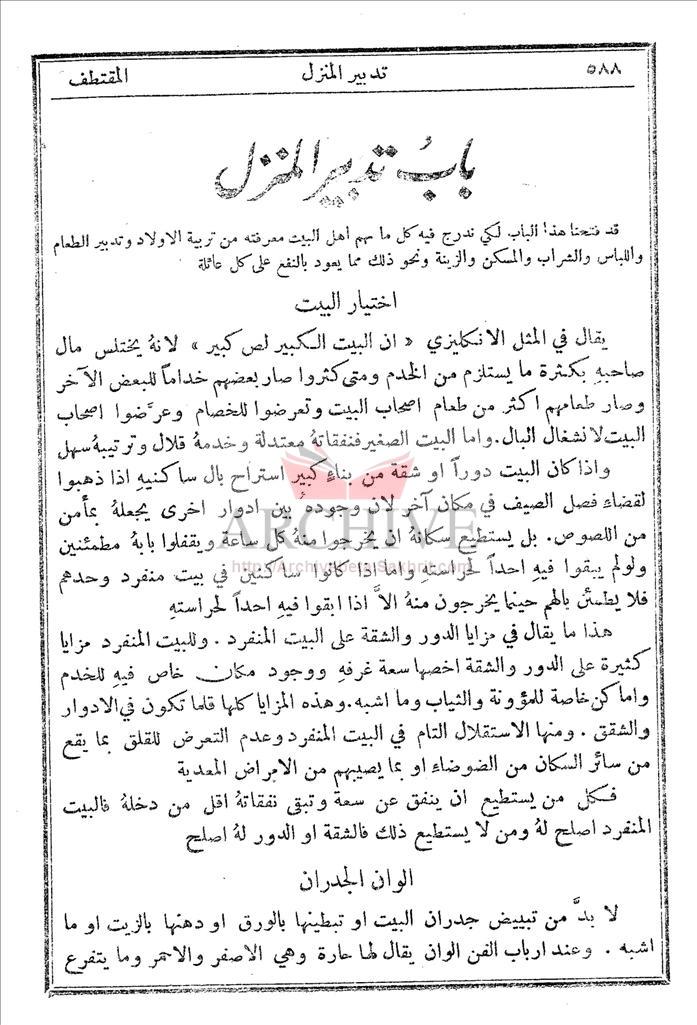 ٥٨٨ تدبير المنزل المقتطف
بابُ تدبير المنزل
قد فتحنا هذا الباب لكي ندرج فيه كل ما يهم اهل البيت معرفته من تربية الاولاد وتدبير الطعام
واللباس والشراب والمسكن والزينة ونحو ذلك مما يعود بالنفع على كل عائلة
اختيار البيت
يقال في المثل الانكليزي « ان البيت الكبير لص كبير » لانهُ يختلس مال
صاحبهِ بكثرة ما يستلزم من الخدم ومتى كثروا صار بعضهم خداماً للبعض الآخر
وصار طعامهم اكثر من طعام اصحاب البيت وتعرضوا للخصام وعرَّضوا اصحاب
البيت لانشغال البال. واما البيت الصغير فنفقاتهُ معتدلة وخدمهُ قلال وترتيبهُ سهل
واذا كان البيت دوراً او شقة من بناءٍ كبير استراح بال ساكنيهِ اذا ذهبوا
لقضاء فصل الصيف في مكان آخر لان وجودهُ بين ادوار اخرى يجعلهُ بمأمن
من اللصوص. بل يستطيع سكانهُ ان يخرجوا منهُ كل ساعة ويقفلوا بابهُ مطمئنين
ولو لم يبقوا فيهِ احداً لحراستهِ واما اذا كانوا ساكنين في بيت منفرد وحدهم
فلا يطمئن بالهم حينما يخرجون منهُ الاَّ اذا ابقوا فيهِ احداً لحراستهِ
هذا ما يقال في مزايا الدور والشقة على البيت المنفرد . وللبيت المنفرد مزايا
كثيرة على الدور والشقة اخصها سعة غرفهِ ووجود مكان خاص فيهِ للخدم
واماكن خاصة للمؤونة والثياب وما اشبه. وهذه المزايا كلها قلما تكون في الادوار
والشقق . ومنها الاستقلال التام في البيت المنفرد وعدم التعرض للقلق بما يقع
من سائر السكان من الضوضاء او بما يصيبهم من الامراض المعدية
فكل من يستطيع ان ينفق عن سعة وتبقى نفقاتهُ اقل من دخلهُ فالبيت
المنفرد اصلح لهُ ومن لا يستطيع ذلك فالشقة او الدور لهُ اصلح
الوان الجدران
لا بدَّ من تبييض جدران البيت او تبطينها بالورق او دهنها بالزيت او ما
اشبه . وعند ارباب الفن الوان يقال لها حارة وهي الاصفر والاحمر وما يتفرع
ARCHIVE
http://Archivebeta.Sakhrit.com